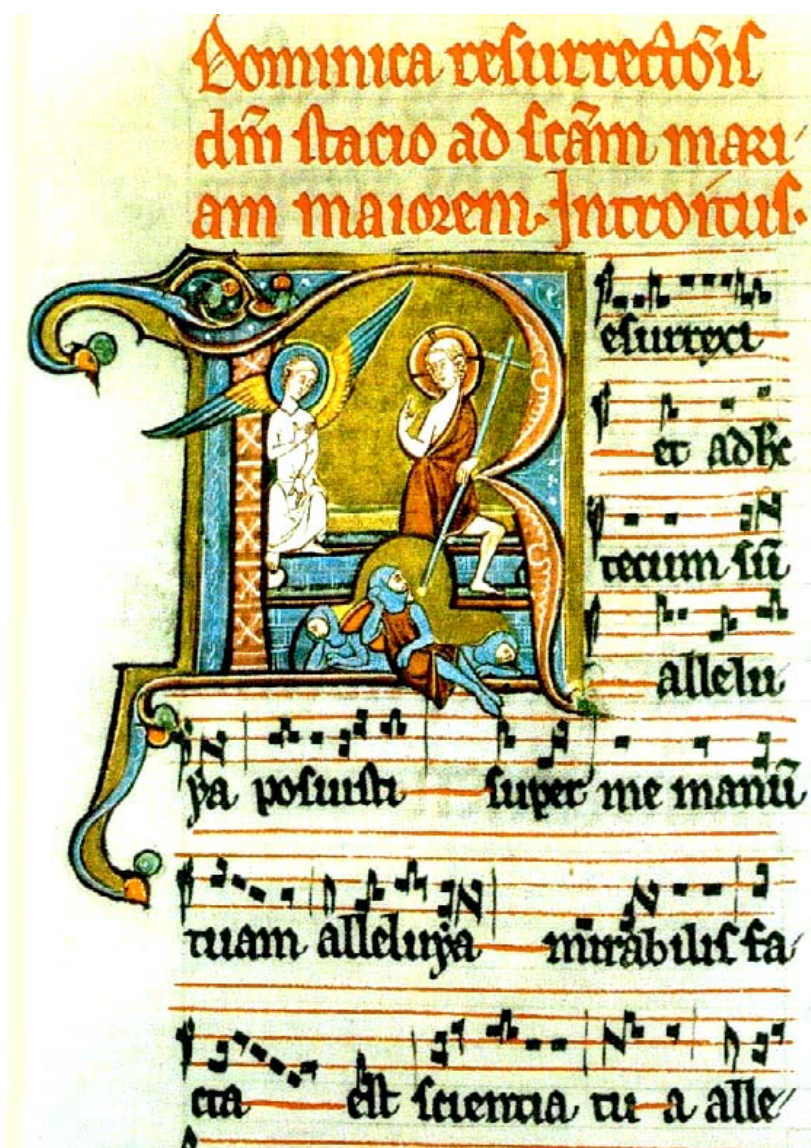 Dominica resurrectōis
dn̄i stacio ad scām mari
am maiorem. Introitus.
Resurrexi
et adhc
tecum sū
allelu
ya posuisti super me manū
tuam alleluya mirabilis fa
cta est sciencia tu a alle